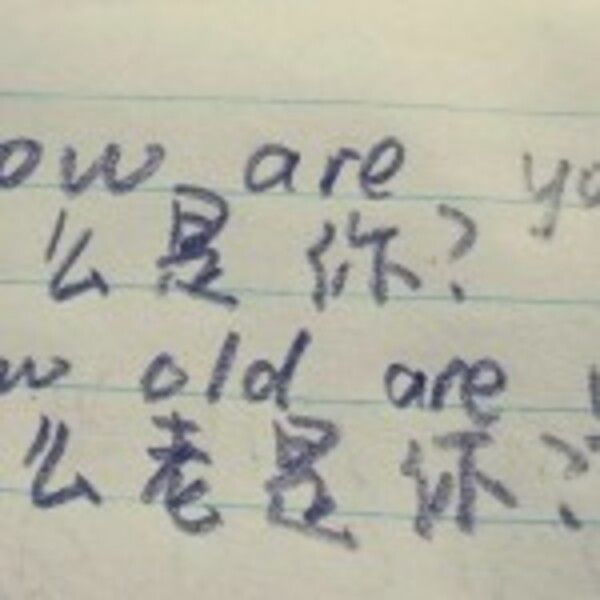 ow are yo
么是你?
w old are
么老是你?